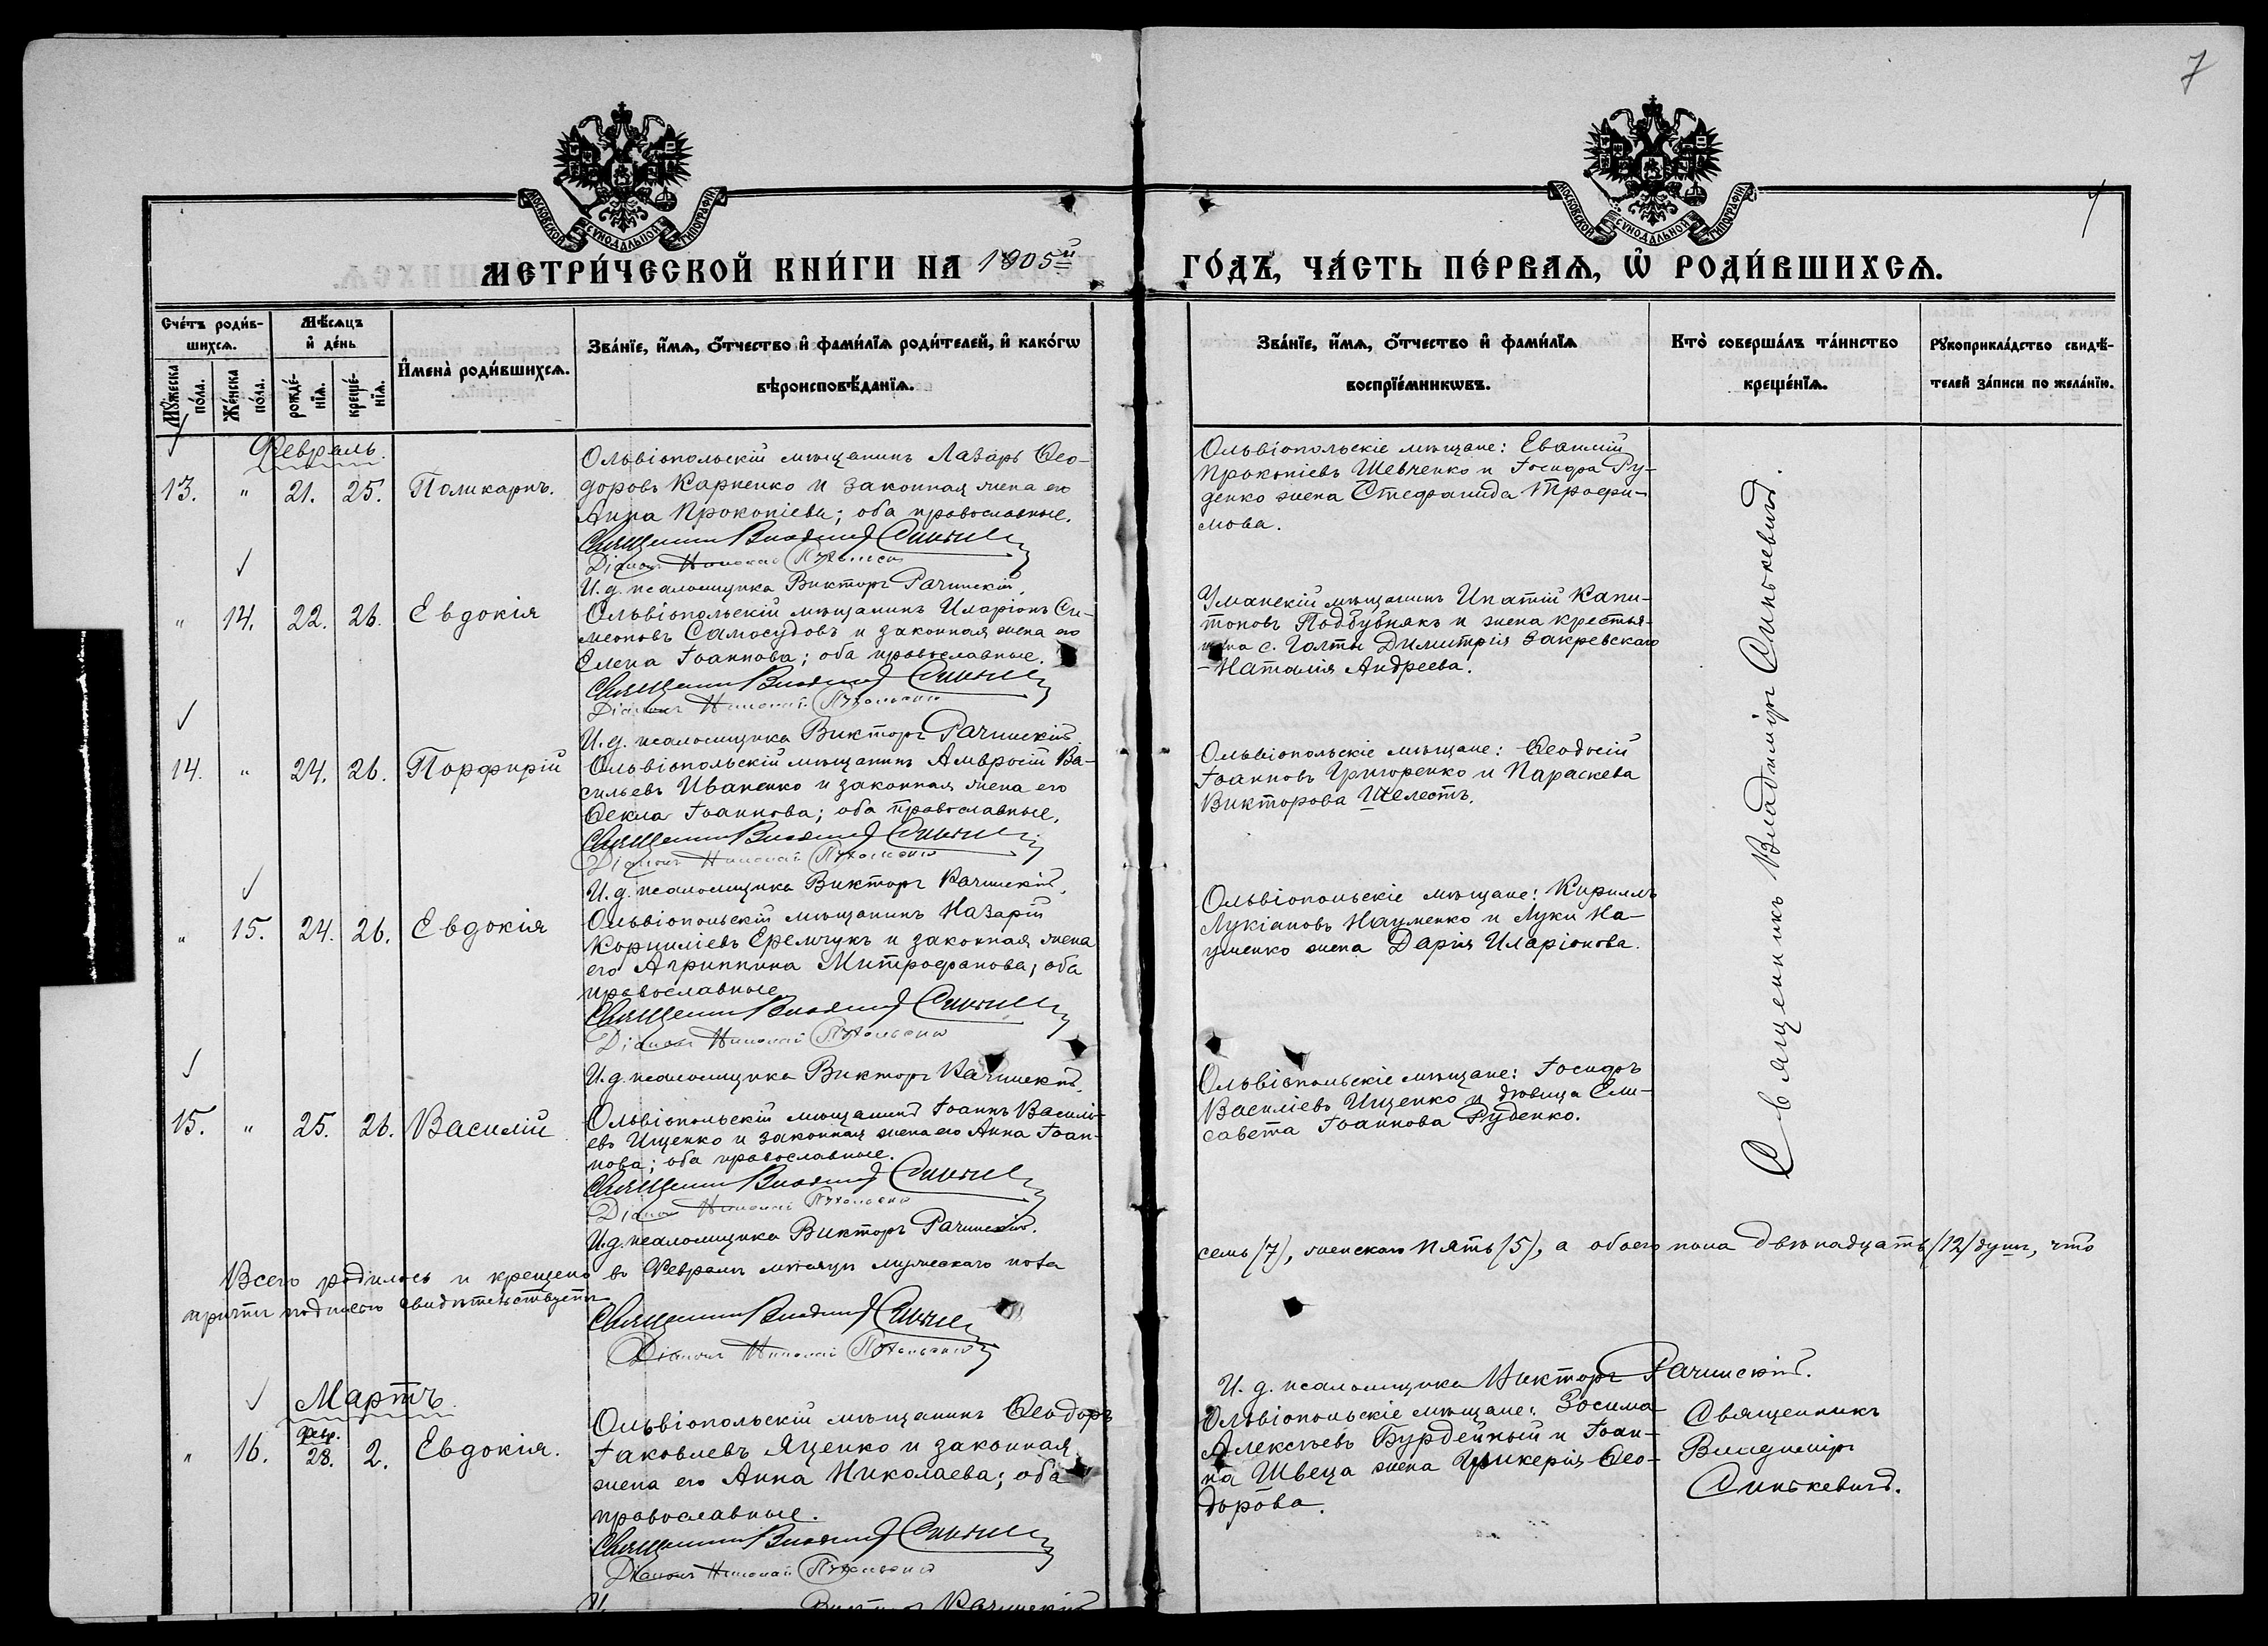 7
МОСКОВСКОЙ СУНОДАЛЬНОЙ ТИПОГРАФІИ
МОСКОВСКОЙ СУНОДАЛЬНОЙ ТИПОГРАФІИ
МЕТРИ́ЧЕСКОЙ КНИ́ГИ НА 1905й
ГО́ДЪ, ЧА́СТЬ ПЕ́РВАѦ, Ѡ҆ РОДИ́ВШИХСѦ.
Сче́тъ роди́в-
шихсѧ.
Мꙋ́жеска по́ла.
Же́нска по́ла.
Мѣ́сѧцъ
и҆ де́нь
рожде́-
нїѧ.
креще́-
нїѧ.
И҆мена̀ роди́вшихсѧ.
Зва́нїе, и҆́мѧ, ѻ҆́тчество и҆ фами́лїѧ роди́телей, и҆ како́гѡ
вѣроисповѣ́данїѧ.
Зва́нїе, и҆́мѧ, ѻ҆́тчество и҆ фами́лїѧ
воспрїе́мникѡвъ.
Кто̀ соверша́лъ та́инство
креще́нїѧ.
Рꙋкоприкла́дство свидѣ́-
телей за́писи по жела́нїю.
Февраль.
13. " 21. 25. Поликарпъ.
Ольвіопольскій мѣщанинъ Лазарь Ѳео-
доровъ Карпенко и законная жена его
Анна Прокопіева; оба православные.
Священникъ Владиміръ Синькевичъ
Діаконъ Николай
И. д. псаломщика Викторъ Рачинскій.
Ольвіопольскіе мѣщане: Евѳимій
Прокопіевъ Шевченко и Іосифа Ру-
денко жена Стефанида Трофи-
мова.
" 14. 22. 26. Евдокія
Ольвіопольскій мѣщанинъ Иларіонъ Си-
меоновъ Самосудовъ и законная жена его
Елена Іоаннова; оба православные.
Священникъ Владиміръ Синькевичъ
Діаконъ Николай
И. д. псаломщика Викторъ Рачинскій.
Уманскій мѣщанинъ Ипатій Капи-
тоновъ Подбубнякъ и жена крестья-
нина с. Голты Димитрія Закревскаго
- Наталія Андреева.
14. " 24. 26. Порфирій
Ольвіопольскій мѣщанинъ Амвросій Ва-
сильевъ Иваненко и законная жена его
Ѳекла Іоаннова; оба православные.
Священникъ Владиміръ Синькевичъ
Діаконъ Николай
И. д. псаломщика Викторъ Рачинскій.
Ольвіопольскіе мѣщане: Ѳеодосій
Іоанновъ Григоренко и Параскева
Викторова Шелестъ.
" 15. 24. 26. Евдокія
Ольвіопольскій мѣщанинъ Назарій
Корниліевъ Еремчукъ и законная жена
его Агриппина Митрофанова; оба
православные.
Священникъ Владиміръ Синькевичъ
Діаконъ Николай
И. д. псаломщика Викторъ Рачинскій.
Ольвіопольскіе мѣщане: Кириллъ
Лукіановъ Науменко и Луки На-
уменко жена Дарія Иларіонова.
15. " 25. 26. Василій
Ольвіопольскій мѣщанинъ Іоаннъ Василі-
евъ Ищенко и законная жена его Анна Іоан-
нова; оба православные.
Священникъ Владиміръ Синькевичъ
Діаконъ Николай
И. д. псаломщика Викторъ Рачинскій.
Ольвіопольскіе мѣщане: Іосифъ
Василіевъ Ищенко и дѣвица Ели-
савета Іоаннова Руденко.
Священникъ Владиміръ Синькевичъ.
Всего родилось и крещено въ Февралѣ мѣсяцѣ мужескаго пола
семь (7), женскаго пять (5), а обоего пола двѣнадцать (12) душъ, что
причтъ подписью свидѣтельствуетъ
Священникъ Владиміръ Синькевичъ
Діаконъ Николай
И. д. псаломщика Викторъ Рачинскій.
Мартъ.
" 16. Февр. 28. 2. Евдокія.
Ольвіопольскій мѣщанинъ Ѳеодоръ
Іаковлевъ Яценко и законная
жена его Анна Николаева; оба
православные.
Священникъ Владиміръ Синькевичъ
Діаконъ Николай
Викторъ Рачинскій
Ольвіопольскіе мѣщане: Зосима
Алексѣевъ Бурдейный и Іоан-
на Швеца жена Гликерія Ѳео-
дорова.
Священникъ
Владиміръ
Синькевичъ.